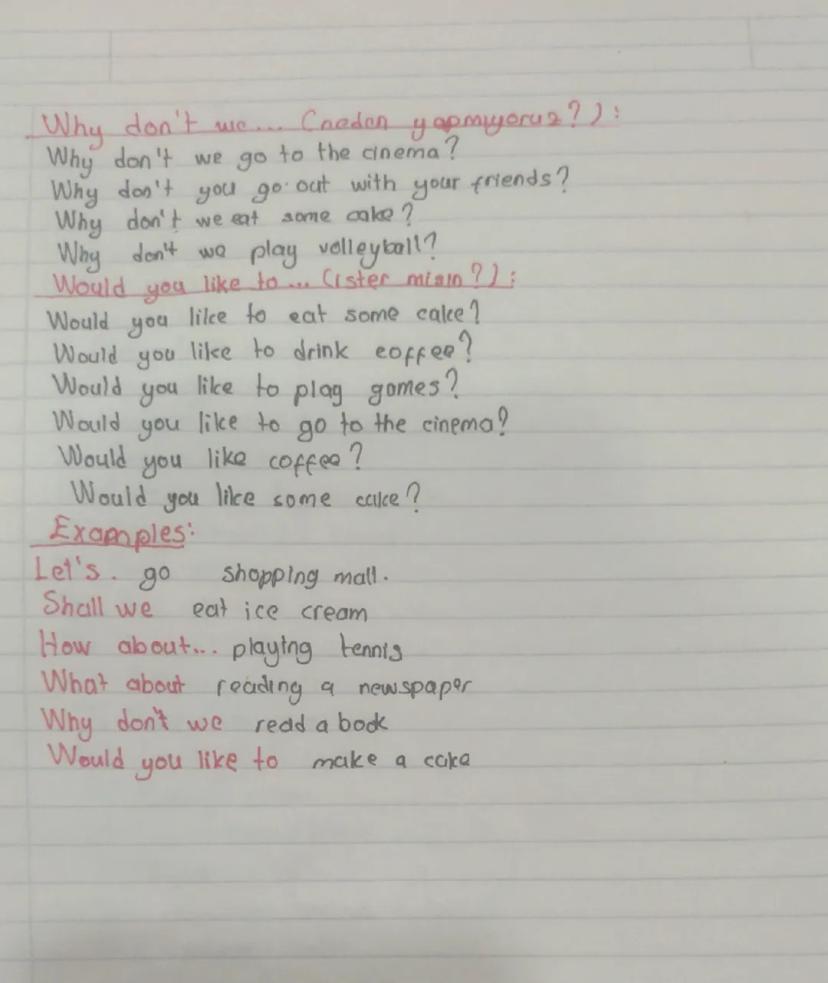 Why don't we... (neden yapmıyoruz?):
Why don't we go to the cinema?
Why don't you go out with your friends?
Why don't we eat some cake?
Why don't we play volleyball?
Would you like to... (ister misin?):
Would you like to eat some cake?
Would you like to drink coffee?
Would you like to play games?
Would you like to go to the cinema?
Would you like coffee?
Would you like some cake?
Examples:
Let's. go shopping mall.
Shall we eat ice cream
How about... playing tennis
What about reading a newspaper
Why don't we read a book
Would you like to make a cake